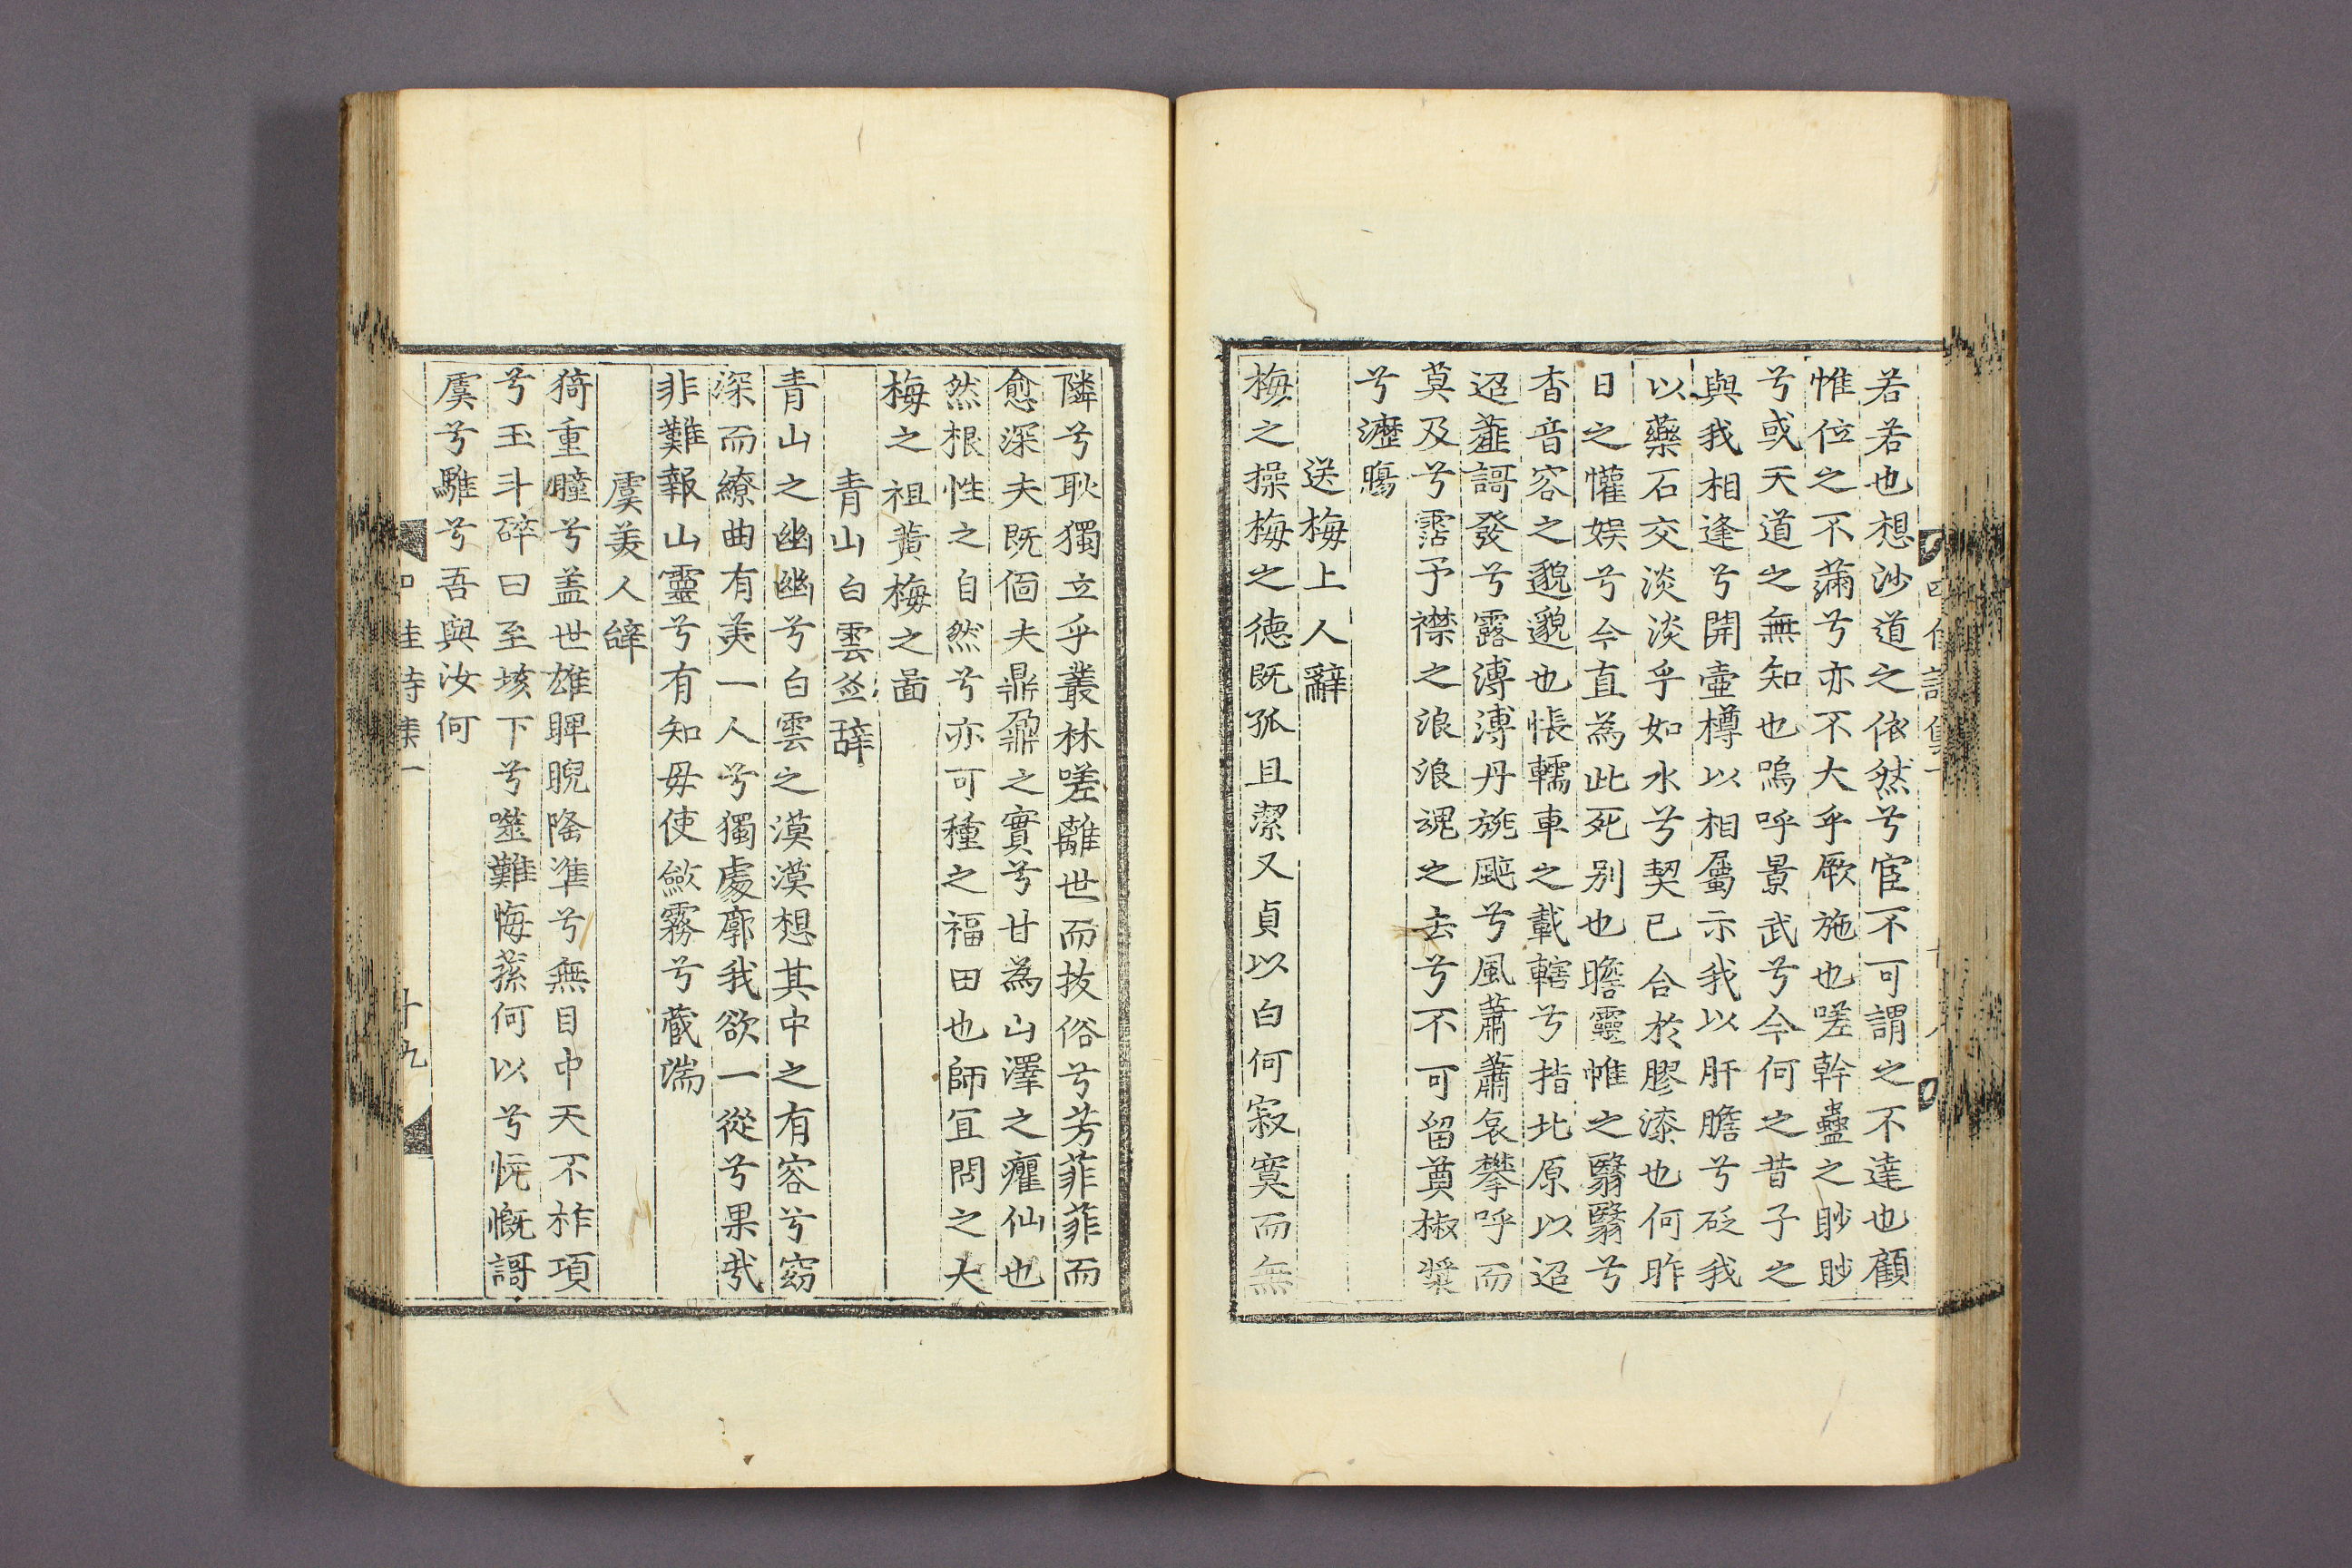 若若也想沙道之依然兮宦不可謂之不達也顧
惟位之不滿兮亦不大乎厥施也嗟幹蠱之眇眇
兮或天道之無知也嗚呼景武兮今何之昔子之
與我相逢兮開壺樽以相屬示我以肝膽兮砭我
以藥石交淡淡乎如水兮契已合於膠漆也何昨
日之懽娱兮今直為此死别也瞻靈帷之翳翳兮
杳音容之邈邈也悵轜車之載轄兮指北原以迢
迢薤謌發兮露漙漙丹旐颭兮風蕭蕭哀攀呼而
莫及兮霑予襟之浪浪魂之去兮不可留奠椒漿
兮瀝觴
送梅上人辭
梅之操梅之德既孤且潔又貞以白何寂寞而無
隣兮耿獨立乎叢林嗟離世而拔俗兮芳菲菲而
愈深夫既個夫鼎鼐之實兮甘為山澤之癯仙也
然根性之自然兮亦可種之福田也師宜問之大
梅之祖黃梅之啚
青山白雲並辞
青山之幽幽兮白雲之漠漠想其中之有容兮窈
深而繚曲有美一人兮獨處廓我欲一從兮果哉
非難報山靈兮有知毋使斂霧兮蔵湍
虞美人辝
猗重瞳兮盖世雄睥睨隆準兮無目中天不祚項
兮玉斗碎曰至垓下兮噬難悔蓀何以兮忼慨謌
虞兮騅兮吾與汝何
四佳詩集一
十九